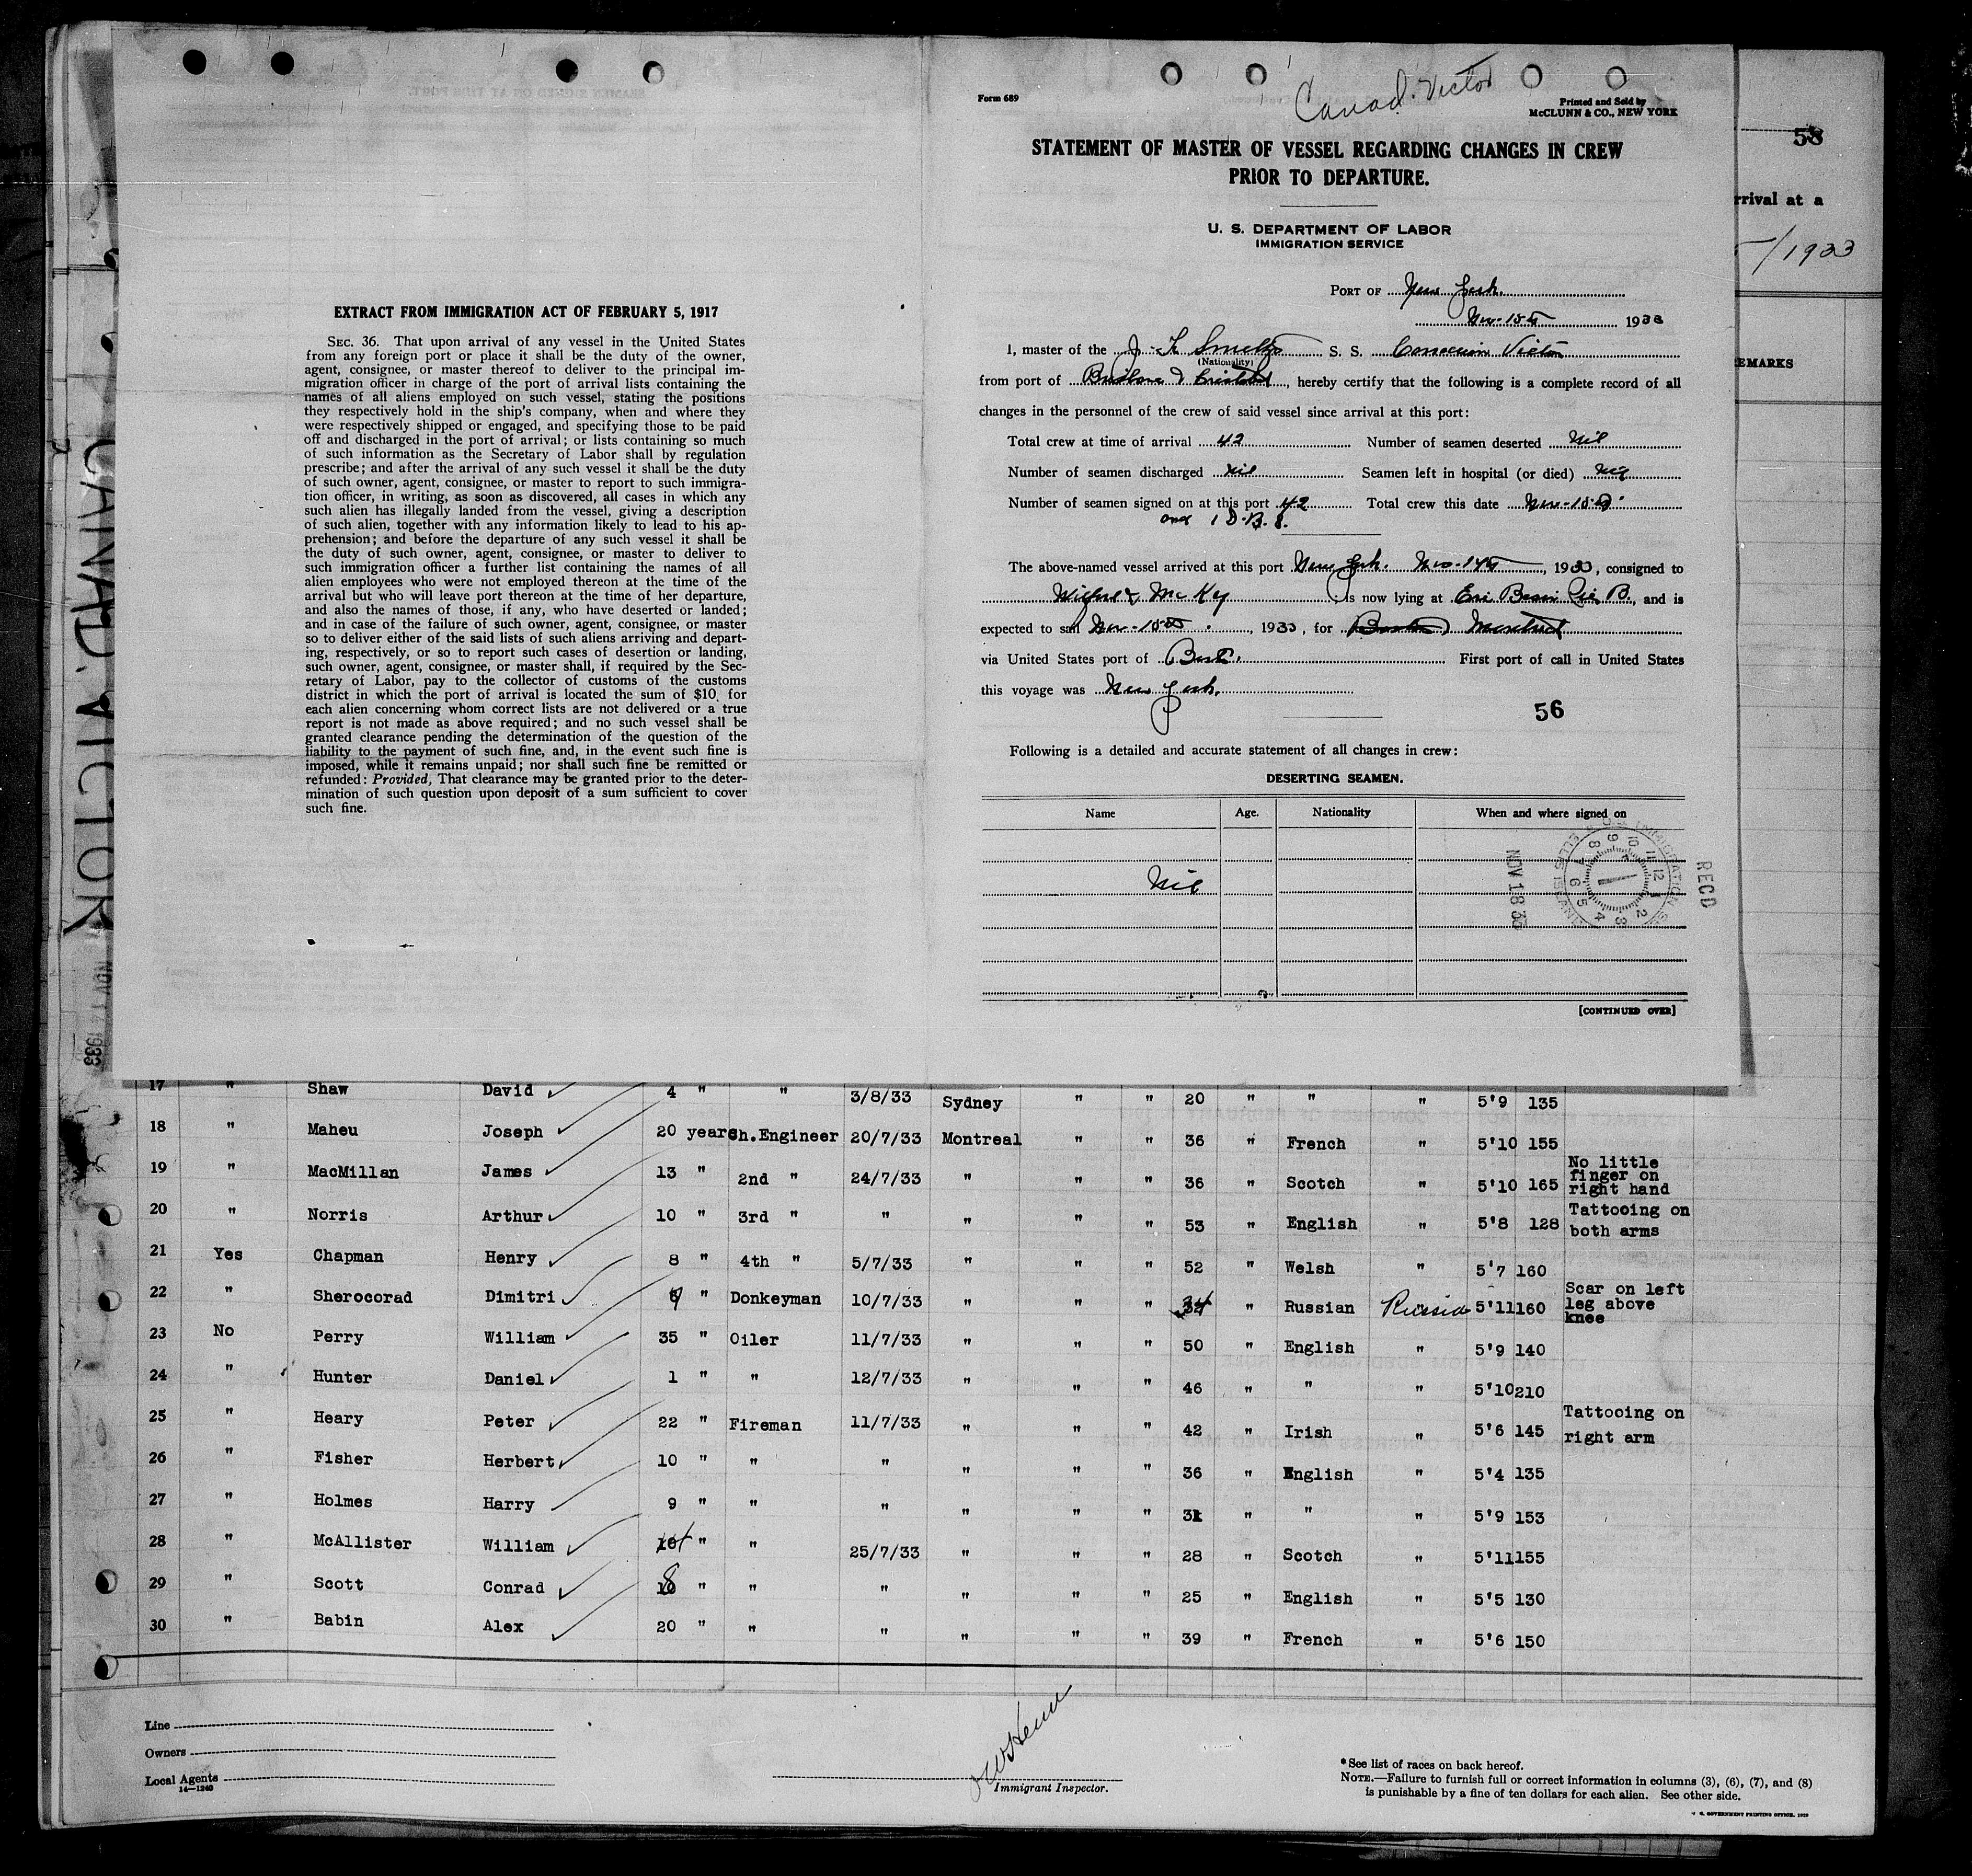 Canad. Victor
Form 689
Printed and Sold by
McCLUNN & CO., NEW YORK
STATEMENT OF MASTER OF VESSEL REGARDING CHANGES IN CREW
PRIOR TO DEPARTURE.
U. S. DEPARTMENT OF LABOR
IMMIGRATION SERVICE
PORT OF New York.
Nov-15th 1933
I, master of the J. S. S. Victor
(Nationality)
from port of , hereby certify that the following is a complete record of all
changes in the personnel of the crew of said vessel since arrival at this port:
Total crew at time of arrival 42 Number of seamen deserted Nil
Number of seamen discharged Nil Seamen left in hospital (or died) Nil
Number of seamen signed on at this port 42 Total crew this date Nov-15th
and 1 D.B.S.
The above-named vessel arrived at this port New York. Nov-14th, 1933, consigned to
McKay is now lying at Erie Basin Pier B., and is
expected to sail Nov-15th, 1933, for Boston Montreal
via United States port of First port of call in United States
this voyage was New York.
56
Following is a detailed and accurate statement of all changes in crew:
DESERTING SEAMEN.
Name Age. Nationality When and where signed on
Nil
RECD
NOV 18 33
U.S. IMMIGRATION ELLIS ISLAND
[CONTINUED OVER]
EXTRACT FROM IMMIGRATION ACT OF FEBRUARY 5, 1917
SEC. 36. That upon arrival of any vessel in the United States
from any foreign port or place it shall be the duty of the owner,
agent, consignee, or master thereof to deliver to the principal im-
migration officer in charge of the port of arrival lists containing the
names of all aliens employed on such vessel, stating the positions
they respectively hold in the ship's company, when and where they
were respectively shipped or engaged, and specifying those to be paid
off and discharged in the port of arrival; or lists containing so much
of such information as the Secretary of Labor shall by regulation
prescribe; and after the arrival of any such vessel it shall be the duty
of such owner, agent, consignee, or master to report to such immigra-
tion officer, in writing, as soon as discovered, all cases in which any
such alien has illegally landed from the vessel, giving a description
of such alien, together with any information likely to lead to his ap-
prehension; and before the departure of any such vessel it shall be
the duty of such owner, agent, consignee, or master to deliver to
such immigration officer a further list containing the names of all
alien employees who were not employed thereon at the time of the
arrival but who will leave port thereon at the time of her departure,
and also the names of those, if any, who have deserted or landed;
and in case of the failure of such owner, agent, consignee, or master
so to deliver either of the said lists of such aliens arriving and depart-
ing, respectively, or so to report such cases of desertion or landing,
such owner, agent, consignee, or master shall, if required by the Sec-
retary of Labor, pay to the collector of customs of the customs
district in which the port of arrival is located the sum of $10 for
each alien concerning whom correct lists are not delivered or a true
report is not made as above required; and no such vessel shall be
granted clearance pending the determination of the question of the
liability to the payment of such fine, and, in the event such fine is
imposed, while it remains unpaid; nor shall such fine be remitted or
refunded: Provided, That clearance may be granted prior to the deter-
mination of such question upon deposit of a sum sufficient to cover
such fine.
CANAD. VICTOR
NOV 14 1933
58
rrival at a
/1933
EMARKS
17 " Shaw David 4 " " 3/8/33 Sydney " " 20 " " 5'9 135
18 " Maheu Joseph 20 years Ch.Engineer 20/7/33 Montreal " " 36 " French " 5'10 155
19 " MacMillan James 13 " 2nd " 24/7/33 " " " 36 " Scotch " 5'10 165 No little finger on right hand
20 " Norris Arthur 10 " 3rd " " " " " 53 " English " 5'8 128 Tattooing on both arms
21 Yes Chapman Henry 8 " 4th " 5/7/33 " " " 52 " Welsh " 5'7 160
22 " Sherocorad Dimitri " Donkeyman 10/7/33 " " " 34 " Russian Russia 5'11 160 Scar on left leg above knee
23 No Perry William 35 " Oiler 11/7/33 " " " 50 " English " 5'9 140
24 " Hunter Daniel 1 " " 12/7/33 " " " 46 " " " 5'10 210
25 " Heary Peter 22 " Fireman 11/7/33 " " " 42 " Irish " 5'6 145 Tattooing on right arm
26 " Fisher Herbert 10 " " " " " " 36 " English " 5'4 135
27 " Holmes Harry 9 " " " " " " 31 " " " 5'9 153
28 " McAllister William " " 25/7/33 " " " 28 " Scotch " 5'11 155
29 " Scott Conrad 8 " " " " " " 25 " English " 5'5 130
30 " Babin Alex 20 " " " " " " 39 " French " 5'6 150
Line
Owners
Local Agents
14—1240
Immigrant Inspector.
* See list of races on back hereof.
NOTE.—Failure to furnish full or correct information in columns (3), (6), (7), and (8)
is punishable by a fine of ten dollars for each alien. See other side.
U. S. GOVERNMENT PRINTING OFFICE. 1929